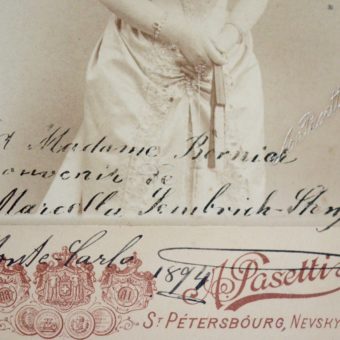 A Madame Bernier
souvenir de
Marcella Sembrich-Steng
Monte-Carlo
1894
A. Pasetti
St Pétersbourg, Nevsky